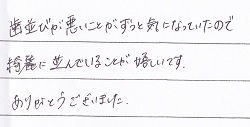 歯並びが悪いことがずっと気になっていたので
綺麗に並んでいることが嬉しいです。
ありがとうございました。